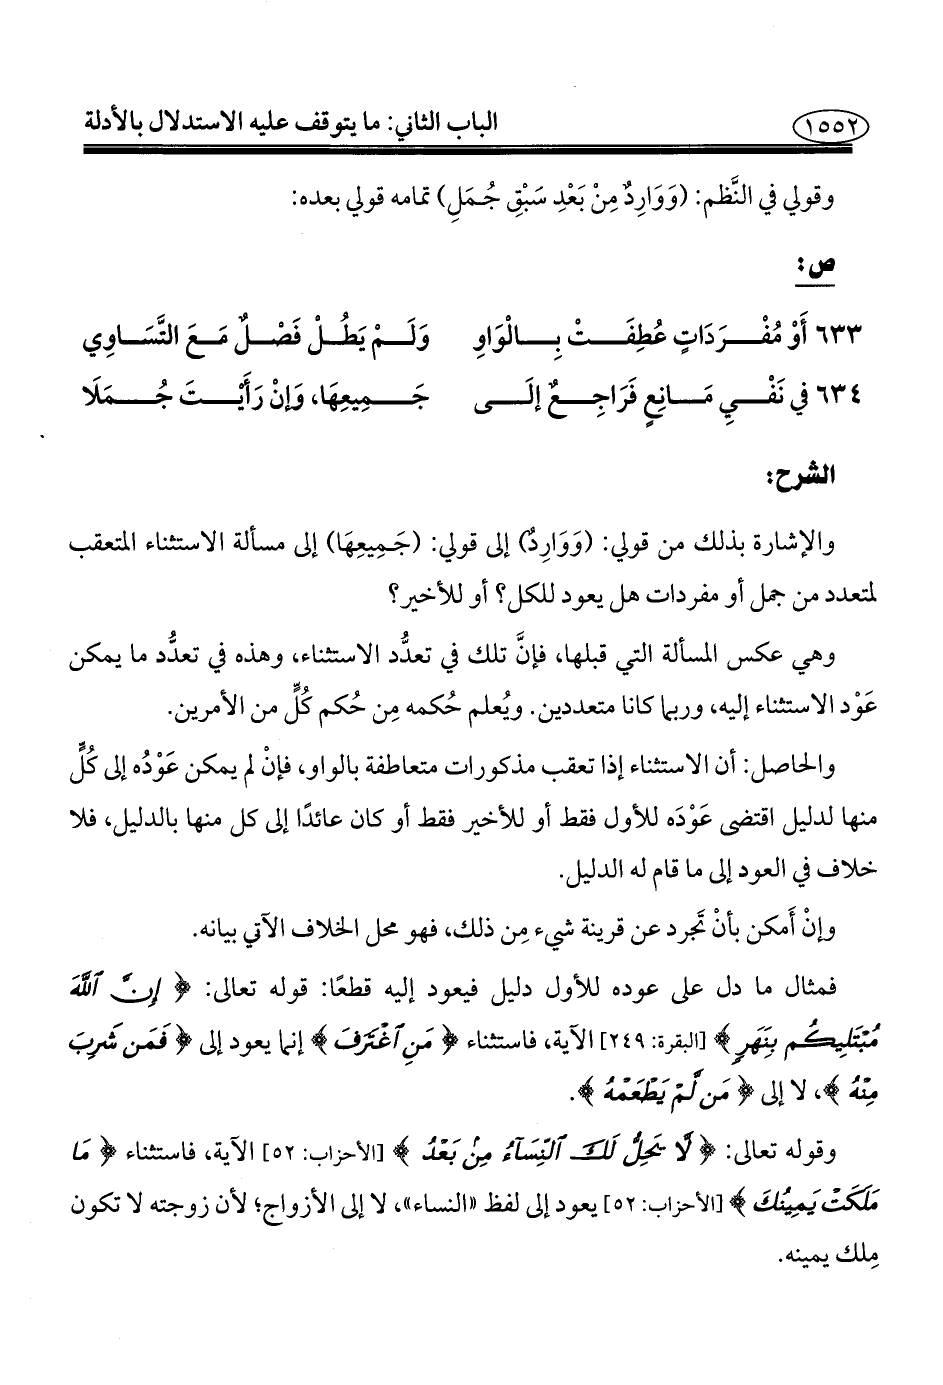 ١٥٥٢ الباب الثاني: ما يتوقف عليه الاستدلال بالأدلة
وقولي في النَّظم: (وَوَارِدٌ مِنْ بَعْدِ سَبْقِ جُمَلِ) تمامه قولي بعده:
ص:
٦٣٣ أَوْ مُفْرَدَاتٍ عُطِفَتْ بِالْوَاوِ وَلَمْ يَطُلْ فَصْلٌ مَعَ التَّسَاوِي
٦٣٤ في نَفْيِ مَانِعٍ فَرَاجِعٌ إلَى جَمِيعِهَا، وَإنْ رَأَيْتَ جُمَلَا
الشرح:
والإشارة بذلك من قولي: (وَوَارِدٌ) إلى قولي: (جَمِيعِهَا) إلى مسألة الاستثناء المتعقب
لمتعدد من جمل أو مفردات هل يعود للكل؟ أو للأخير؟
وهي عكس المسألة التي قبلها، فإنَّ تلك في تعدُّد الاستثناء، وهذه في تعدُّد ما يمكن
عَوْد الاستثناء إليه، وربما كانا متعددين. ويُعلم حُكمه مِن حُكم كُلٍّ من الأمرين.
والحاصل: أن الاستثناء إذا تعقب مذكورات متعاطفة بالواو، فإنْ لم يمكن عَوْدُه إلى كُلٍّ
منها لدليل اقتضى عَوْدَه للأول فقط أو للأخير فقط أو كان عائدًا إلى كل منها بالدليل، فلا
خلاف في العود إلى ما قام له الدليل.
وإنْ أَمكن بأنْ تَجرد عن قرينة شيء مِن ذلك، فهو محل الخلاف الآتي بيانه.
فمثال ما دل على عوده للأول دليل فيعود إليه قطعًا: قوله تعالى: ﴿ إِنَّ ٱللَّهَ
مُبْتَلِيكُم بِنَهَرٍ ﴾ [البقرة: ٢٤٩] الآية، فاستثناء ﴿ مَنِ ٱغْتَرَفَ ﴾ إنما يعود إلى ﴿ فَمَن شَرِبَ
مِنْهُ ﴾، لا إلى ﴿ مَن لَّمْ يَطْعَمْهُ ﴾.
وقوله تعالى: ﴿ لَّا يَحِلُّ لَكَ ٱلنِّسَآءُ مِنۢ بَعْدُ ﴾ [الأحزاب: ٥٢] الآية، فاستثناء ﴿ مَا
مَلَكَتْ يَمِينُكَ ﴾ [الأحزاب: ٥٢] يعود إلى لفظ «النساء»، لا إلى الأزواج؛ لأن زوجته لا تكون
مِلك يمينه.